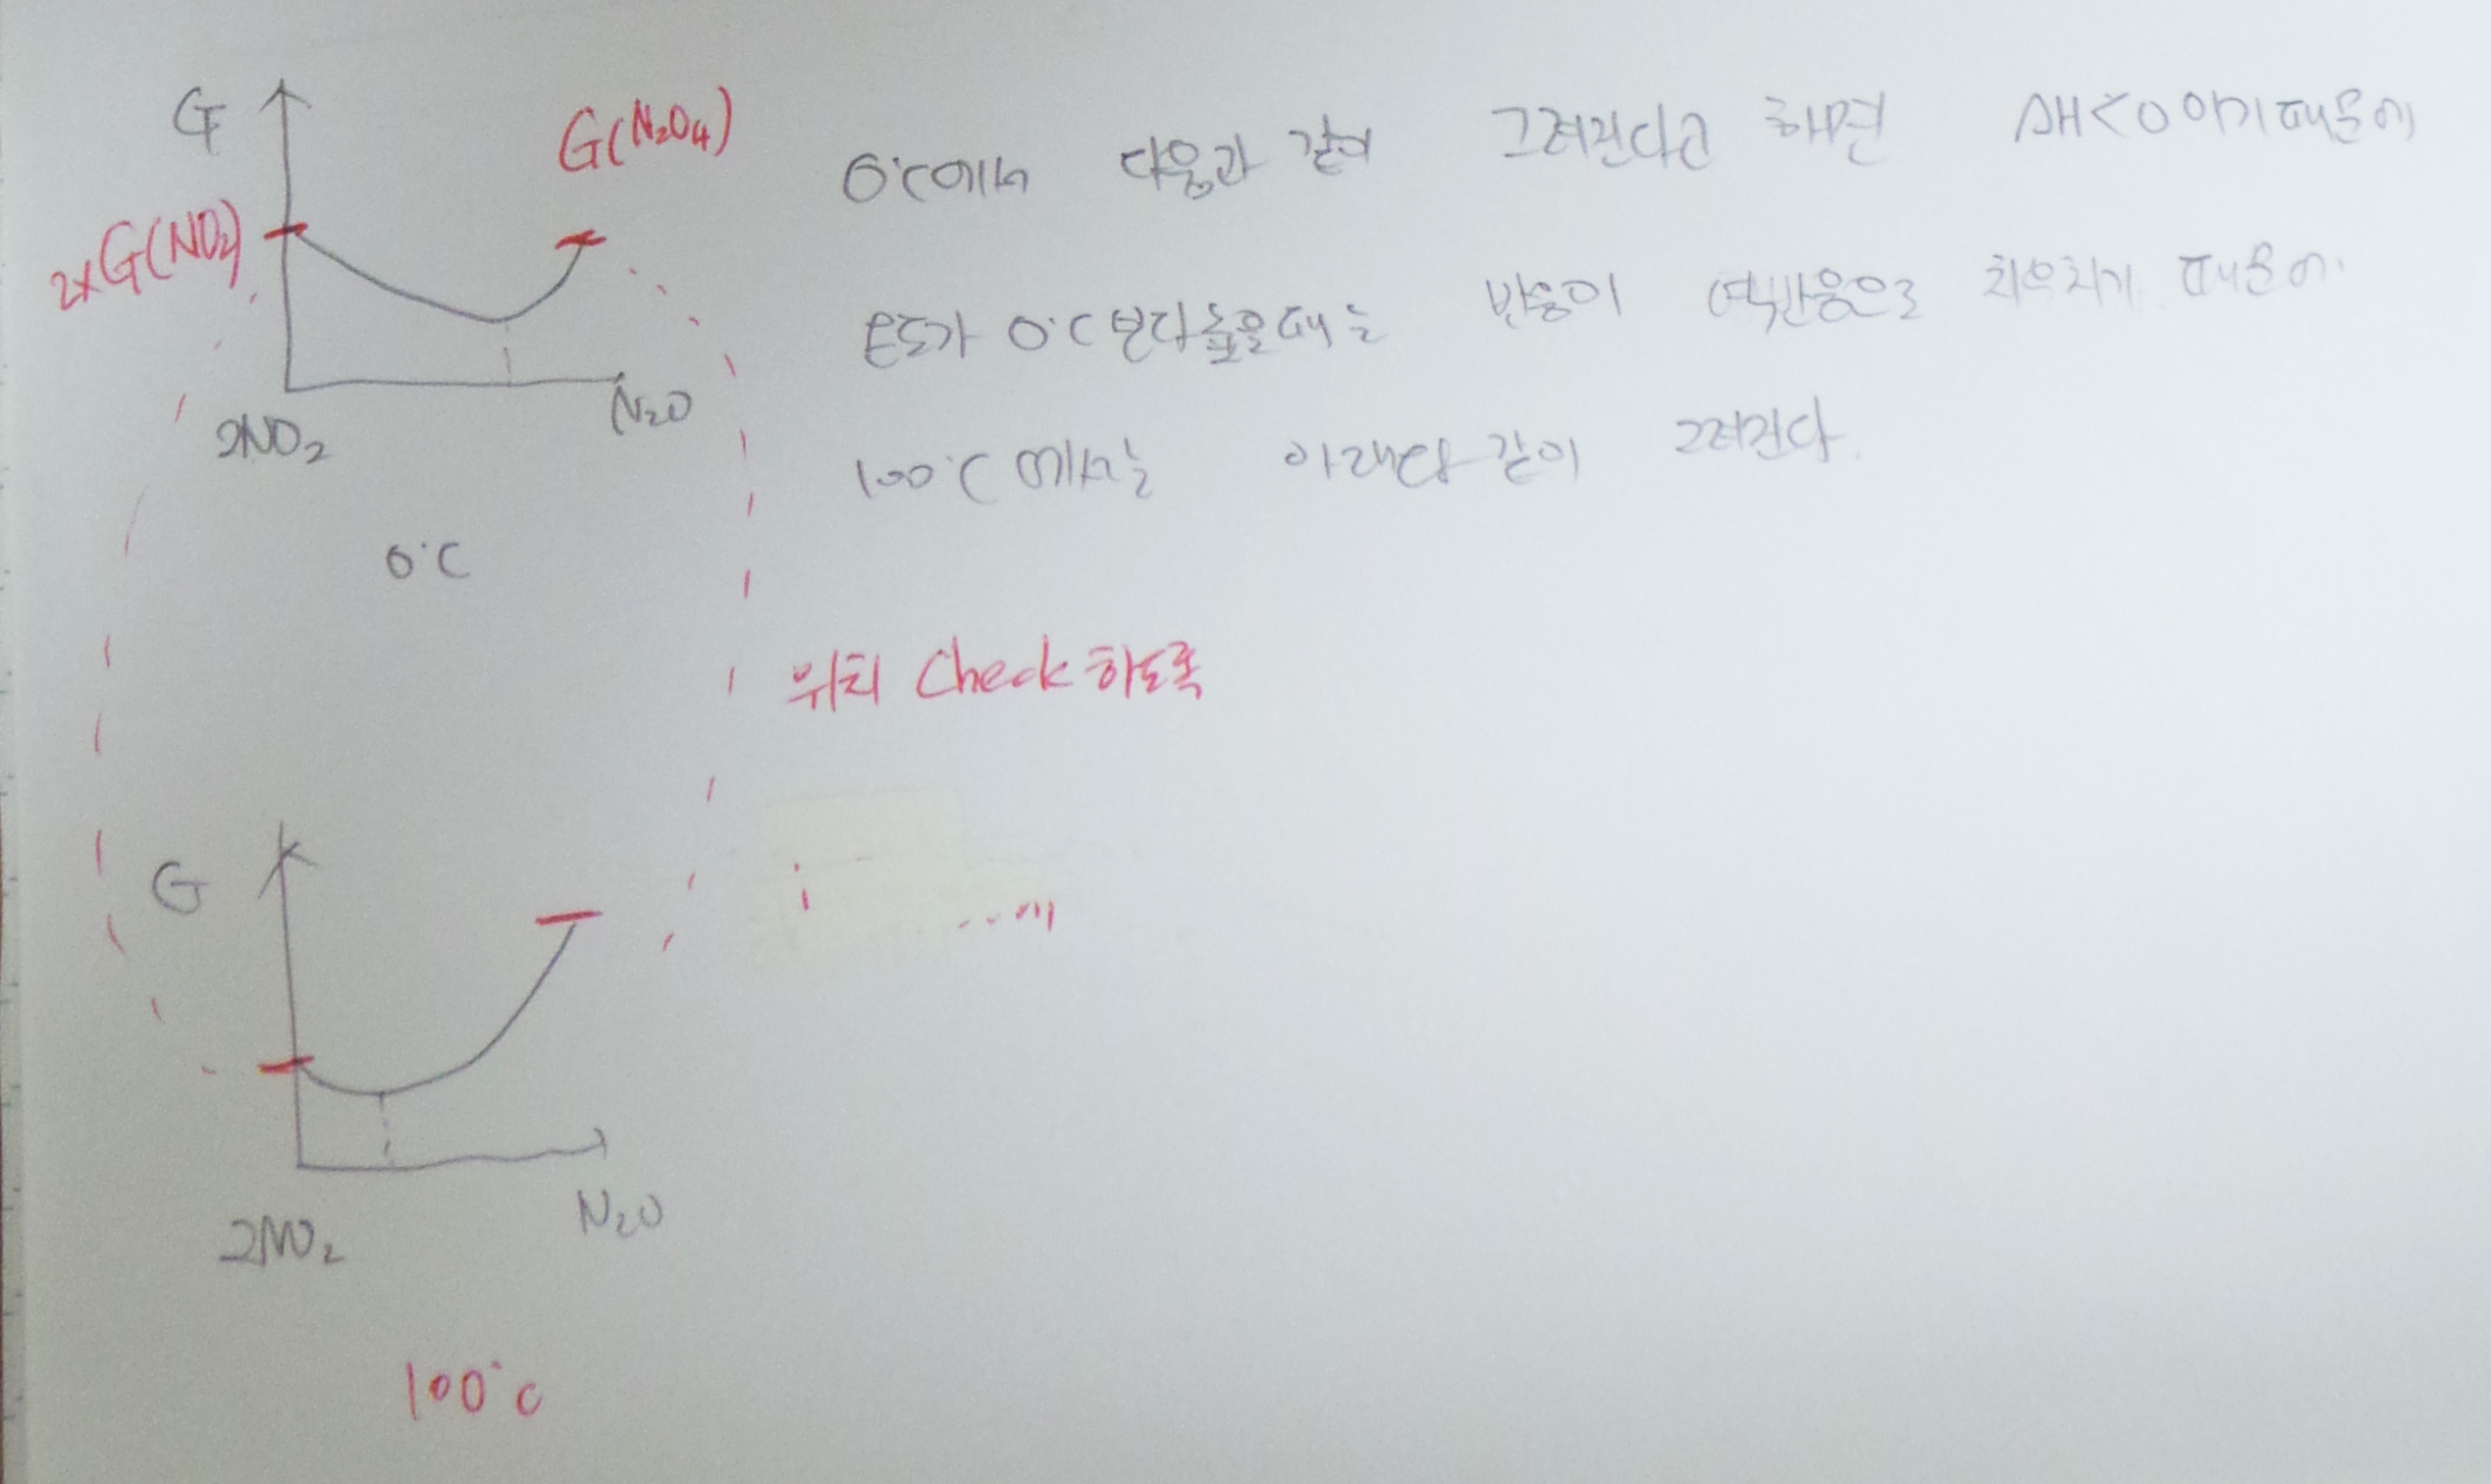 G
G(N₂O₄)
2xG(NO₂)
2NO₂
N₂O
0°C
0°C에서 다음과 같이 그려진다고 하면 ΔH<0이기 때문에
온도가 0°C보다 높을때는 반응이 역반응으로 치우치기 때문에
100°C에서는 아래와 같이 그려진다.
위치 Check하도록
G
2NO₂
N₂O
100°C